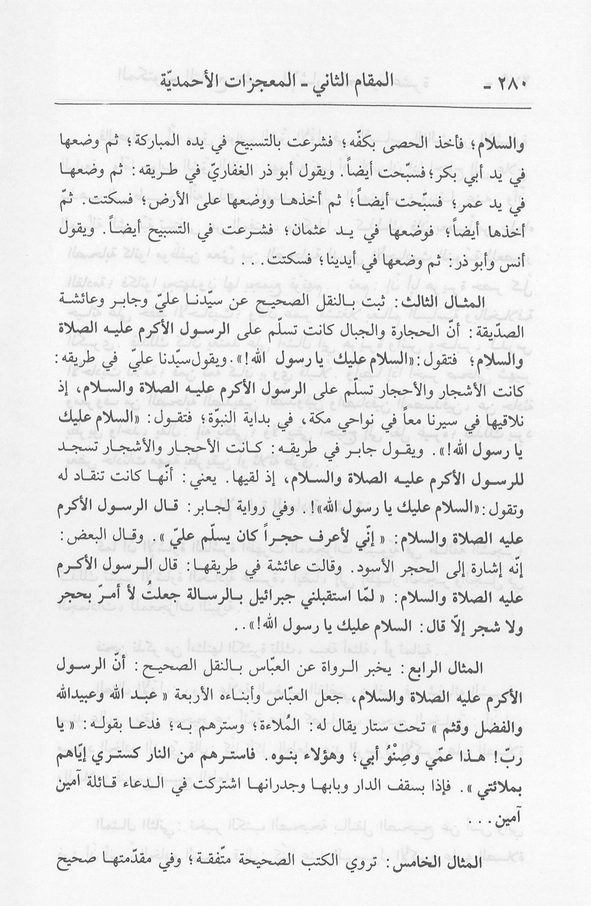 ٢٨٠ - المقام الثاني - المعجزات الأحمديّة
والسلام؛ فأخذ الحصى بكفّه؛ فشرعت بالتسبيح في يده المباركة؛ ثم وضعها
في يد أبي بكر؛ فسبّحت أيضاً. ويقول أبو ذر الغفاريّ في طريقه: ثم وضعها
في يد عمر؛ فسبّحت أيضاً؛ ثم أخذها ووضعها على الأرض؛ فسكتت. ثمّ
أخذها أيضاً؛ فوضعها في يد عثمان؛ فشرعت في التسبيح أيضاً. ويقول
أنس وأبو ذر: ثم وضعها في أيدينا؛ فسكتت...
المثال الثالث: ثبت بالنقل الصحيح عن سيّدنا عليّ وجابر وعائشة
الصدّيقة: أنّ الحجارة والجبال كانت تسلّم على الرسول الأكرم عليه الصلاة
والسلام؛ فتقول: «السلام عليك يا رسول الله!». ويقول سيّدنا عليّ في طريقه:
كانت الأشجار والأحجار تسلّم على الرسول الأكرم عليه الصلاة والسلام، إذ
نلاقيها في سيرنا معاً في نواحي مكة، في بداية النبوّة؛ فتقول: «السلام عليك
يا رسول الله!». ويقول جابر في طريقه: كانت الأحجار والأشجار تسجد
للرسول الأكرم عليه الصلاة والسلام، إذ لقيها. يعني: أنّها كانت تنقاد له
وتقول: «السلام عليك يا رسول الله»!. وفي رواية لجابر: قال الرسول الأكرم
عليه الصلاة والسلام: « إنّي لأعرف حجراً كان يسلّم عليّ ». وقال البعض:
إنّه إشارة إلى الحجر الأسود. وقالت عائشة في طريقها: قال الرسول الأكرم
عليه الصلاة والسلام: « لمّا استقبلني جبرائيل بالرسالة جعلتْ لا أمرّ بحجر
ولا شجر إلّا قال: السلام عليك يا رسول الله!»..
المثال الرابع: يخبر الرواة عن العبّاس بالنقل الصحيح: أنّ الرسول
الأكرم عليه الصلاة والسلام، جعل العبّاس وأبناءه الأربعة « عبد الله وعبيدالله
والفضل وقثم » تحت ستار يقال له: المُلاءة؛ وسترهم به؛ فدعا بقوله: « يا
ربّ! هذا عمّي وصِنْوُ أبي؛ وهؤلاء بنوه. فاسترهم من النار كستري إيّاهم
بملائتي ». فإذا بسقف الدار وبابها وجدرانها اشتركت في الدعاء قائلة آمين
آمين...
المثال الخامس: تروي الكتب الصحيحة متّفقة؛ وفي مقدّمتها صحيح